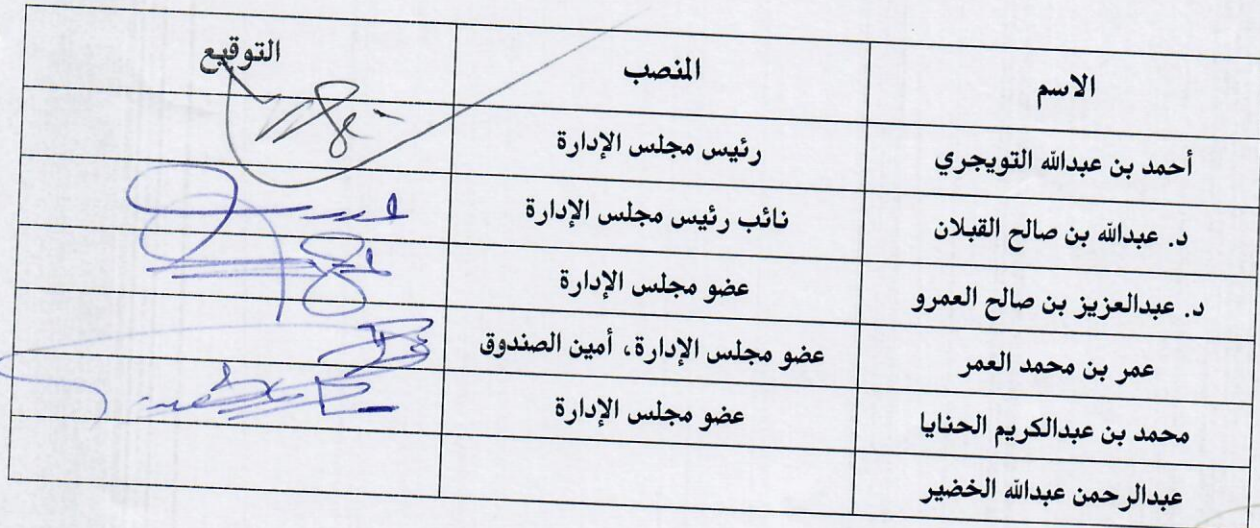 الاسم المنصب التوقيع
أحمد بن عبدالله التويجري رئيس مجلس الإدارة
د. عبدالله بن صالح القبلان نائب رئيس مجلس الإدارة
د. عبدالعزيز بن صالح العمرو عضو مجلس الإدارة
عمر بن محمد العمر عضو مجلس الإدارة، أمين الصندوق
محمد بن عبدالكريم الحنايا عضو مجلس الإدارة
عبدالرحمن عبدالله الخضير